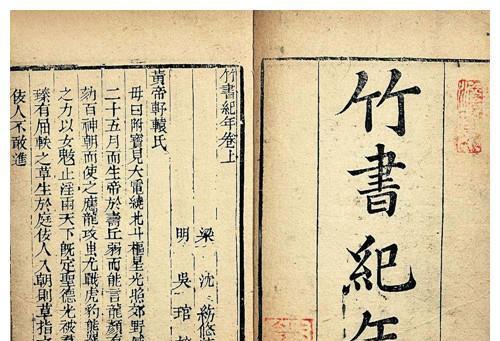 竹書紀年
竹書紀年卷上
梁 沈約
明 吳琯
黃帝軒轅氏
母曰附寶見大電繞北斗樞星光照郊野
二十五月而生帝於壽丘弱而能言龍顏有
劾百神朝而使之應龍攻蚩尤戰虎豹熊
之力以女魃止淫雨天下既定聖德光被
臻有屈軼之草生於庭佞人入朝則草指
佞人不敢進